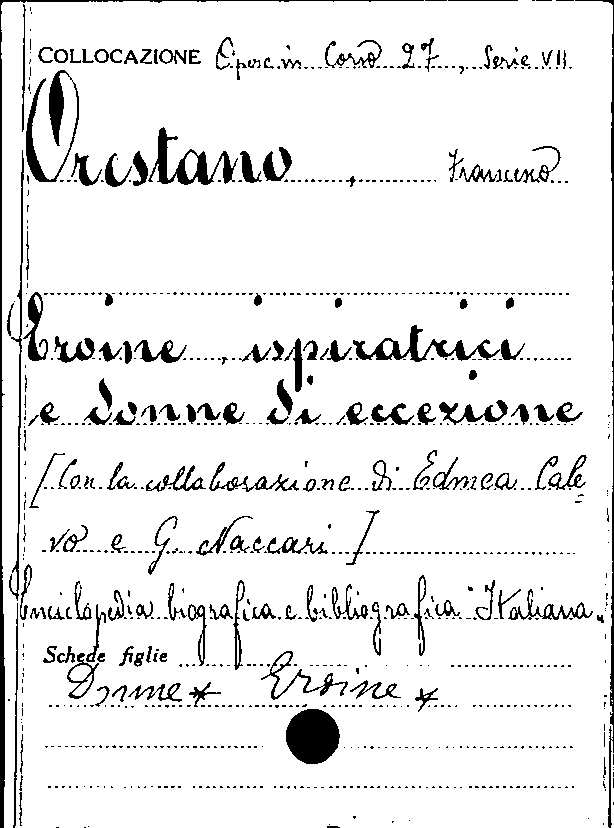 COLLOCAZIONE Opere in Corso 27, Serie VII
Orestano, Francesco
Eroine, ispiratrici
e donne di eccezione
[Con la collaborazione di Edmea Cale=
vo e G. Naccari]
Enciclopedia biografica e bibliografica "Italiana"
Schede figlie
Donne* Eroine*